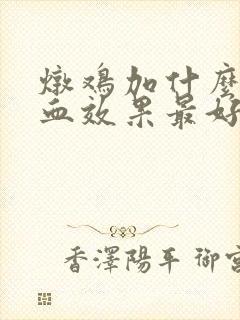 燉鸡加什麽
血效果最好
香澤陽平 御宮